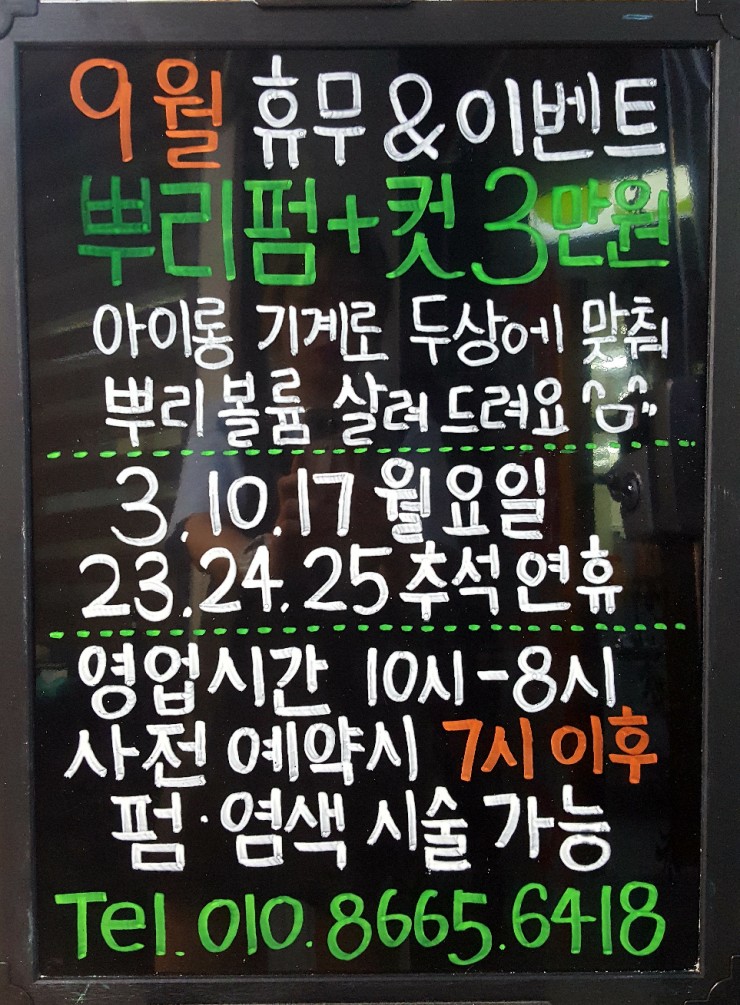 9월 휴무 & 이벤트
뿌리펌+컷 3만원
아이롱 기계로 두상에 맞춰
뿌리볼륨 살려드려요 ^^
3.10.17 월요일
23.24.25 추석연휴
영업시간 10시-8시
사전 예약시 7시 이후
펌·염색 시술 가능
Tel. 010. 8665.6418